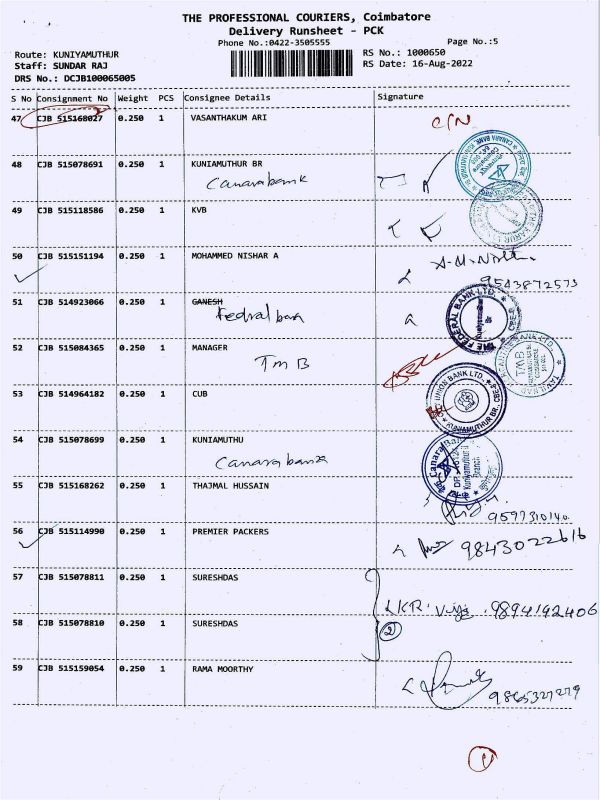 THE PROFESSIONAL COURIERS, Coimbatore
Delivery Runsheet - PCK
Phone No.:0422-3505555
Page No.:5
Route: KUNIYAMUTHUR
RS No.: 1000650
Staff: SUNDAR RAJ
RS Date: 16-Aug-2022
DRS No.: DCJB100065005
S No Consignment No Weight PCS Consignee Details Signature
47 CJB 515168027 0.250 1 VASANTHAKUM ARI
48 CJB 515078691 0.250 1 KUNIAMUTHUR BR
Canara bank
49 CJB 515118586 0.250 1 KVB
50 CJB 515151194 0.250 1 MOHAMMED NISHAR A
9543872573
51 CJB 514923066 0.250 1 GANESH
Fedral bank
THE FEDERAL BANK LTD.
52 CJB 515084365 0.250 1 MANAGER
TMB
TMB
53 CJB 514964182 0.250 1 CUB
CITY UNION BANK LTD.
KUNIAMUTHUR BR.
54 CJB 515078699 0.250 1 KUNIAMUTHU
Canara bank
Canara Bank
Kuniyamuthur
Branch
55 CJB 515168262 0.250 1 THAJMAL HUSSAIN
56 CJB 515114990 0.250 1 PREMIER PACKERS
9843022616
57 CJB 515078811 0.250 1 SURESHDAS
9894192406
58 CJB 515078810 0.250 1 SURESHDAS
2
59 CJB 515159054 0.250 1 RAMA MOORTHY
9865327279